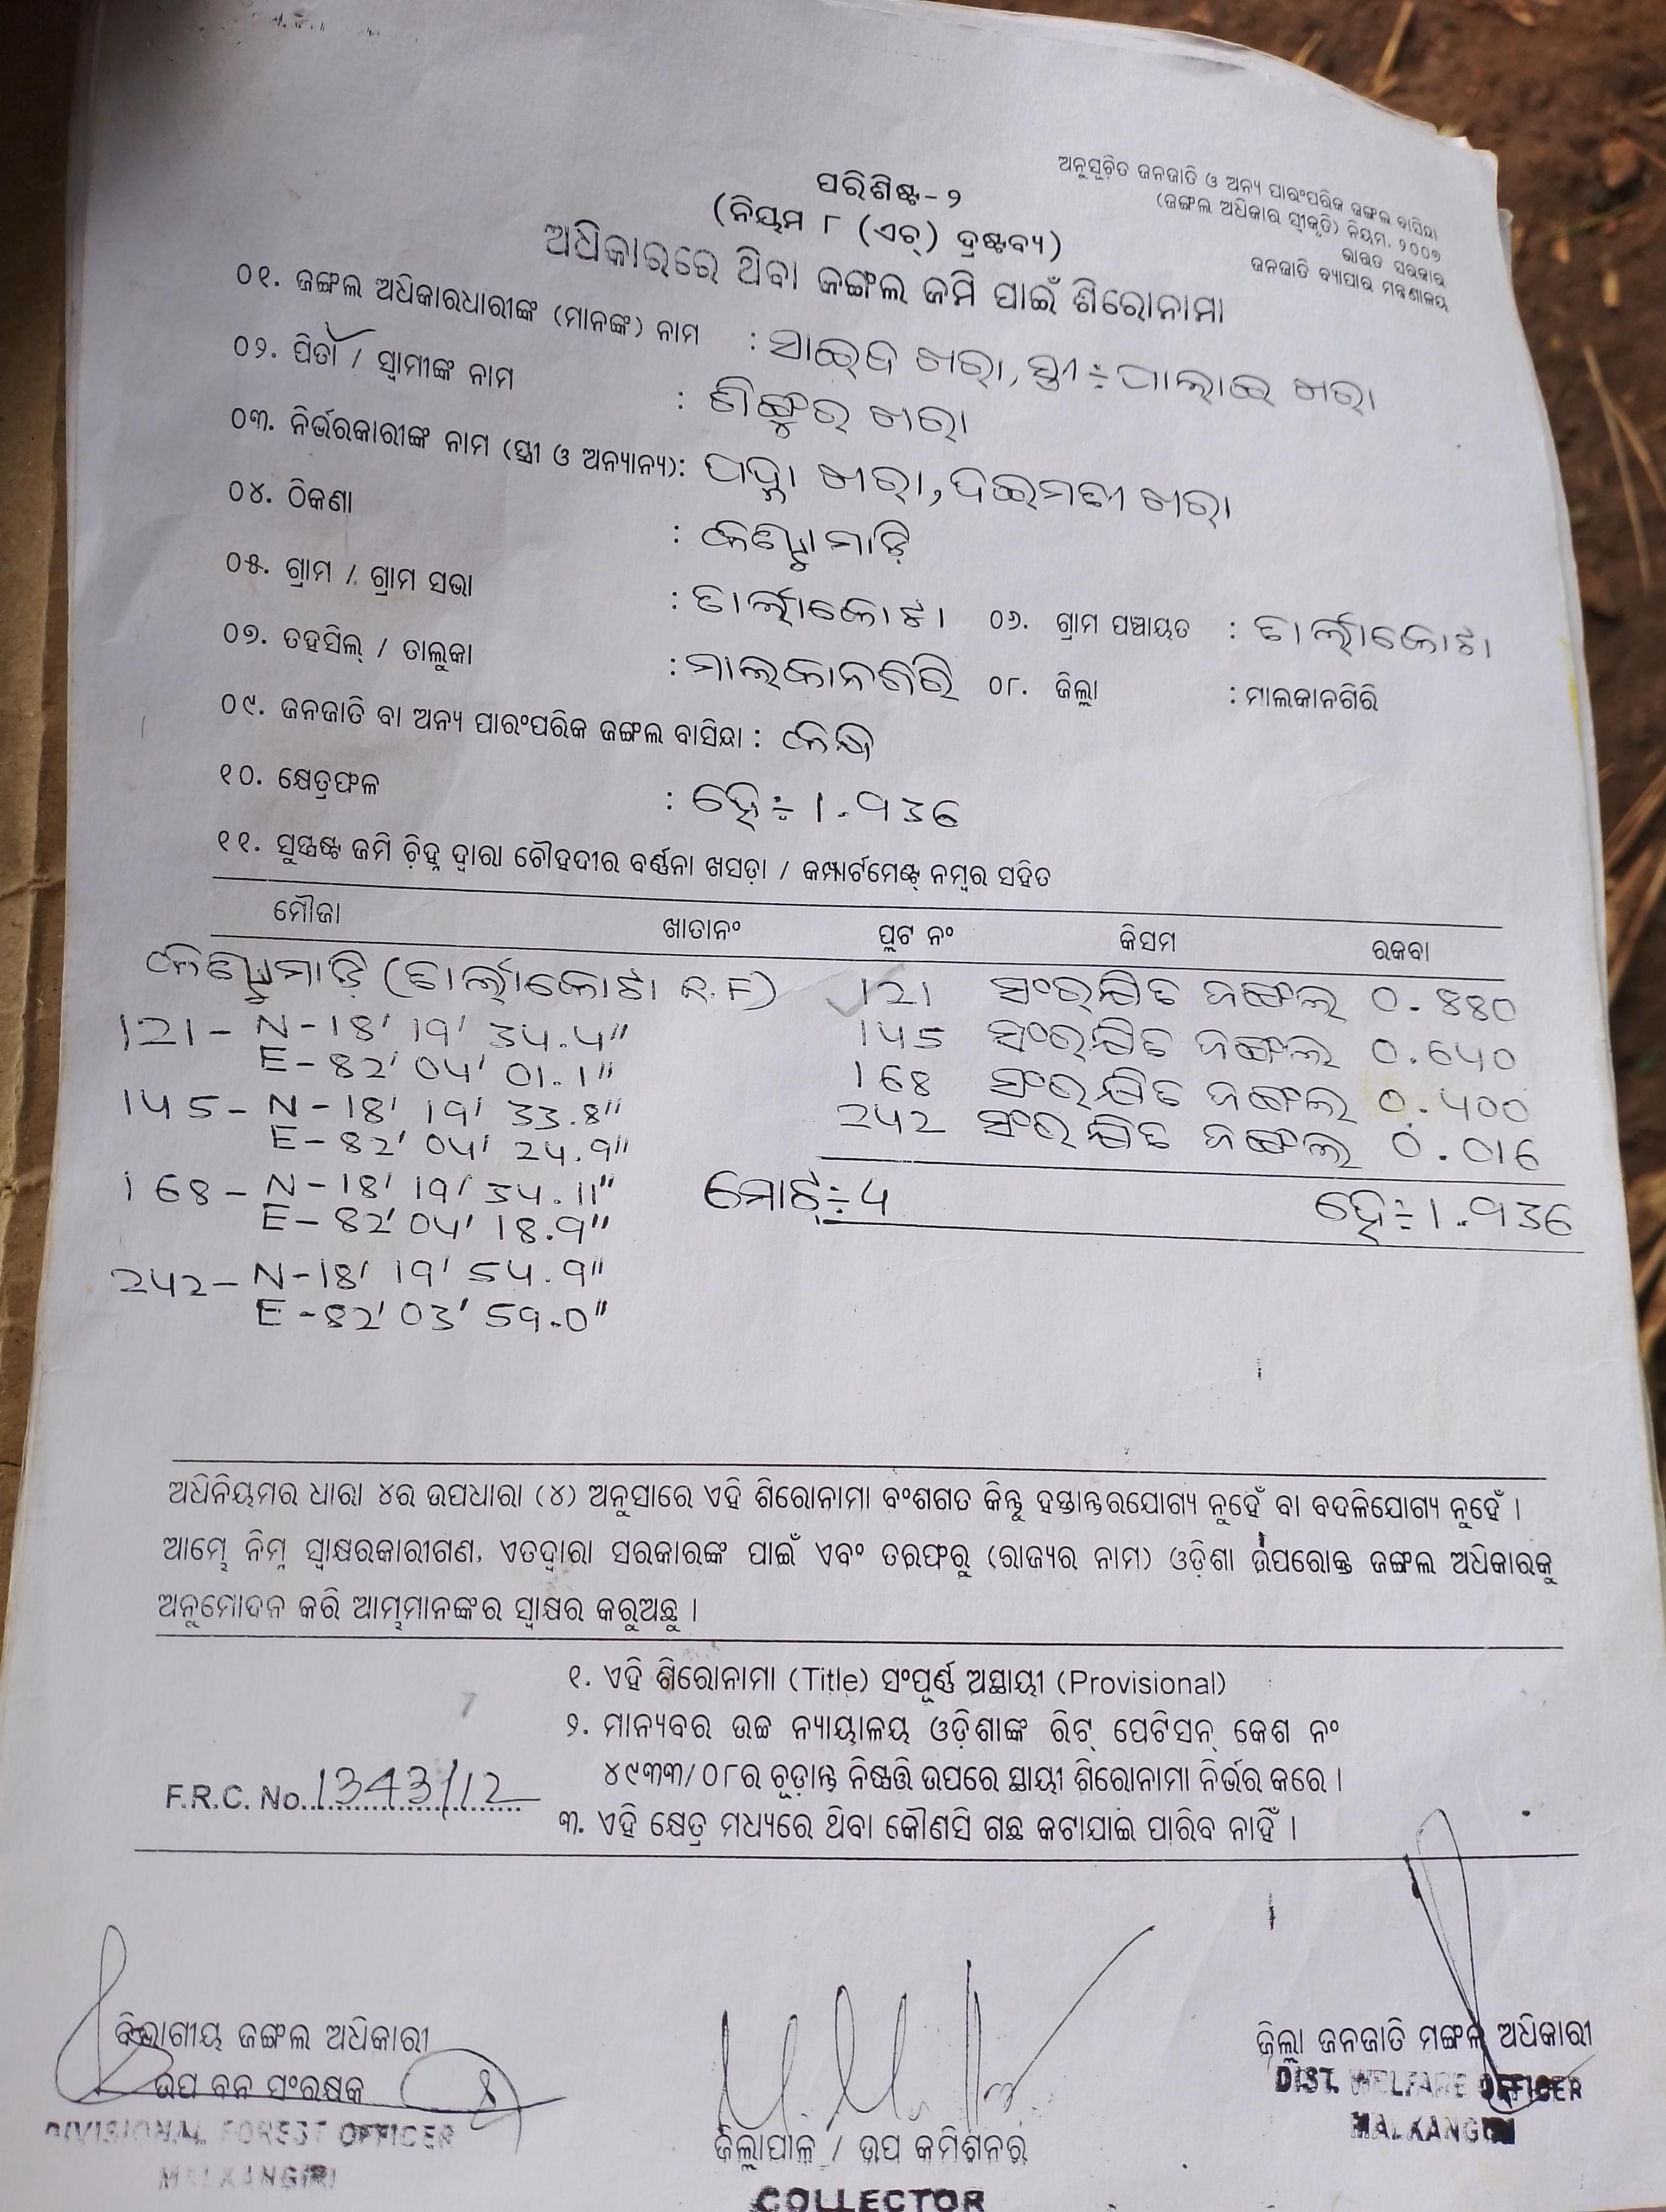 ଅନୁସୂଚିତ ଜନଜାତି ଓ ଅନ୍ୟ ପାରଂପରିକ ଜଙ୍ଗଲ ବାସିନ୍ଦା
(ଜଙ୍ଗଲ ଅଧିକାର ସ୍ୱୀକୃତି) ନିୟମ, ୨୦୦୭
ଭାରତ ସରକାର
ଜନଜାତି ବ୍ୟାପାର ମନ୍ତ୍ରଣାଳୟ
ପରିଶିଷ୍ଟ - ୨
(ନିୟମ ୮ (ଏଚ୍) ଦ୍ରଷ୍ଟବ୍ୟ)
ଅଧିକାରରେ ଥିବା ଜଙ୍ଗଲ ଜମି ପାଇଁ ଶିରୋନାମା
୦୧. ଜଙ୍ଗଲ ଅଧିକାରଧାରୀଙ୍କ (ମାନଙ୍କ) ନାମ : ଖରା, ସ୍ତ୍ରୀ÷ ଖରା
୦୨. ପିତା / ସ୍ୱାମୀଙ୍କ ନାମ : ଖରା
୦୩. ନିର୍ଭରକାରୀଙ୍କ ନାମ (ସ୍ତ୍ରୀ ଓ ଅନ୍ୟାନ୍ୟ): ଖରା, ଖରା
୦୪. ଠିକଣା :
୦୫. ଗ୍ରାମ / ଗ୍ରାମ ସଭା : ତାର୍ଲାକୋଟା ୦୬. ଗ୍ରାମ ପଞ୍ଚାୟତ : ତାର୍ଲାକୋଟା
୦୭. ତହସିଲ୍ / ତାଲୁକା : ମାଲକାନଗିରି ୦୮. ଜିଲ୍ଲା : ମାଲକାନଗିରି
୦୯. ଜନଜାତି ବା ଅନ୍ୟ ପାରଂପରିକ ଜଙ୍ଗଲ ବାସିନ୍ଦା :
୧୦. କ୍ଷେତ୍ରଫଳ : ହେ÷1.936
୧୧. ସୁସ୍ପଷ୍ଟ ଜମି ଚିହ୍ନ ଦ୍ୱାରା ଚୌହଦୀର ବର୍ଣ୍ଣନା ଖସଡ଼ା / କମ୍ପାର୍ଟମେଣ୍ଟ୍ ନମ୍ବର ସହିତ
ମୌଜା ଖାତାନଂ ପ୍ଲଟ ନଂ କିସମ ରକବା
(ତାର୍ଲାକୋଟା R.F) 121 ସଂରକ୍ଷିତ ଜଙ୍ଗଲ 0.880
121- N-18' 19' 34.4" 145 ସଂରକ୍ଷିତ ଜଙ୍ଗଲ 0.640
E-82' 04' 01.1" 168 ସଂରକ୍ଷିତ ଜଙ୍ଗଲ 0.400
145- N-18' 19' 33.8" 242 ସଂରକ୍ଷିତ ଜଙ୍ଗଲ 0.016
E-82' 04' 24.9"
168- N-18' 19' 34.11" ମୋଟ୍÷4 ହେ÷1.936
E-82' 04' 18.9"
242- N-18' 19' 54.9"
E-82' 03' 59.0"
ଅଧିନିୟମର ଧାରା ୪ର ଉପଧାରା (୪) ଅନୁସାରେ ଏହି ଶିରୋନାମା ବଂଶଗତ କିନ୍ତୁ ହସ୍ତାନ୍ତରଯୋଗ୍ୟ ନୁହେଁ ବା ବଦଳିଯୋଗ୍ୟ ନୁହେଁ ।
ଆମ୍ଭେ ନିମ୍ନ ସ୍ୱାକ୍ଷରକାରୀଗଣ, ଏତଦ୍ୱାରା ସରକାରଙ୍କ ପାଇଁ ଏବଂ ତରଫରୁ (ରାଜ୍ୟର ନାମ) ଓଡ଼ିଶା ଉପରୋକ୍ତ ଜଙ୍ଗଲ ଅଧିକାରକୁ
ଅନୁମୋଦନ କରି ଆମ୍ଭମାନଙ୍କର ସ୍ୱାକ୍ଷର କରୁଅଛୁ ।
୧. ଏହି ଶିରୋନାମା (Title) ସଂପୂର୍ଣ୍ଣ ଅସ୍ଥାୟୀ (Provisional)
୨. ମାନ୍ୟବର ଉଚ୍ଚ ନ୍ୟାୟାଳୟ ଓଡ଼ିଶାଙ୍କ ରିଟ୍ ପେଟିସନ୍ କେଶ ନଂ
୪୯୩୩/୦୮ର ଚୂଡ଼ାନ୍ତ ନିଷ୍ପତ୍ତି ଉପରେ ସ୍ଥାୟୀ ଶିରୋନାମା ନିର୍ଭର କରେ ।
F.R.C. No. 1343/12
୩. ଏହି କ୍ଷେତ୍ର ମଧ୍ୟରେ ଥିବା କୌଣସି ଗଛ କଟାଯାଇ ପାରିବ ନାହିଁ ।
ବିଭାଗୀୟ ଜଙ୍ଗଲ ଅଧିକାରୀ
ଉପ ବନ ସଂରକ୍ଷକ
DIVISIONAL FOREST OFFICER
MALKANGIRI
ଜିଲ୍ଲାପାଳ / ଉପ କମିଶନର
COLLECTOR
ଜିଲ୍ଲା ଜନଜାତି ମଙ୍ଗଳ ଅଧିକାରୀ
DIST. WELFARE OFFICER
MALKANGIRI